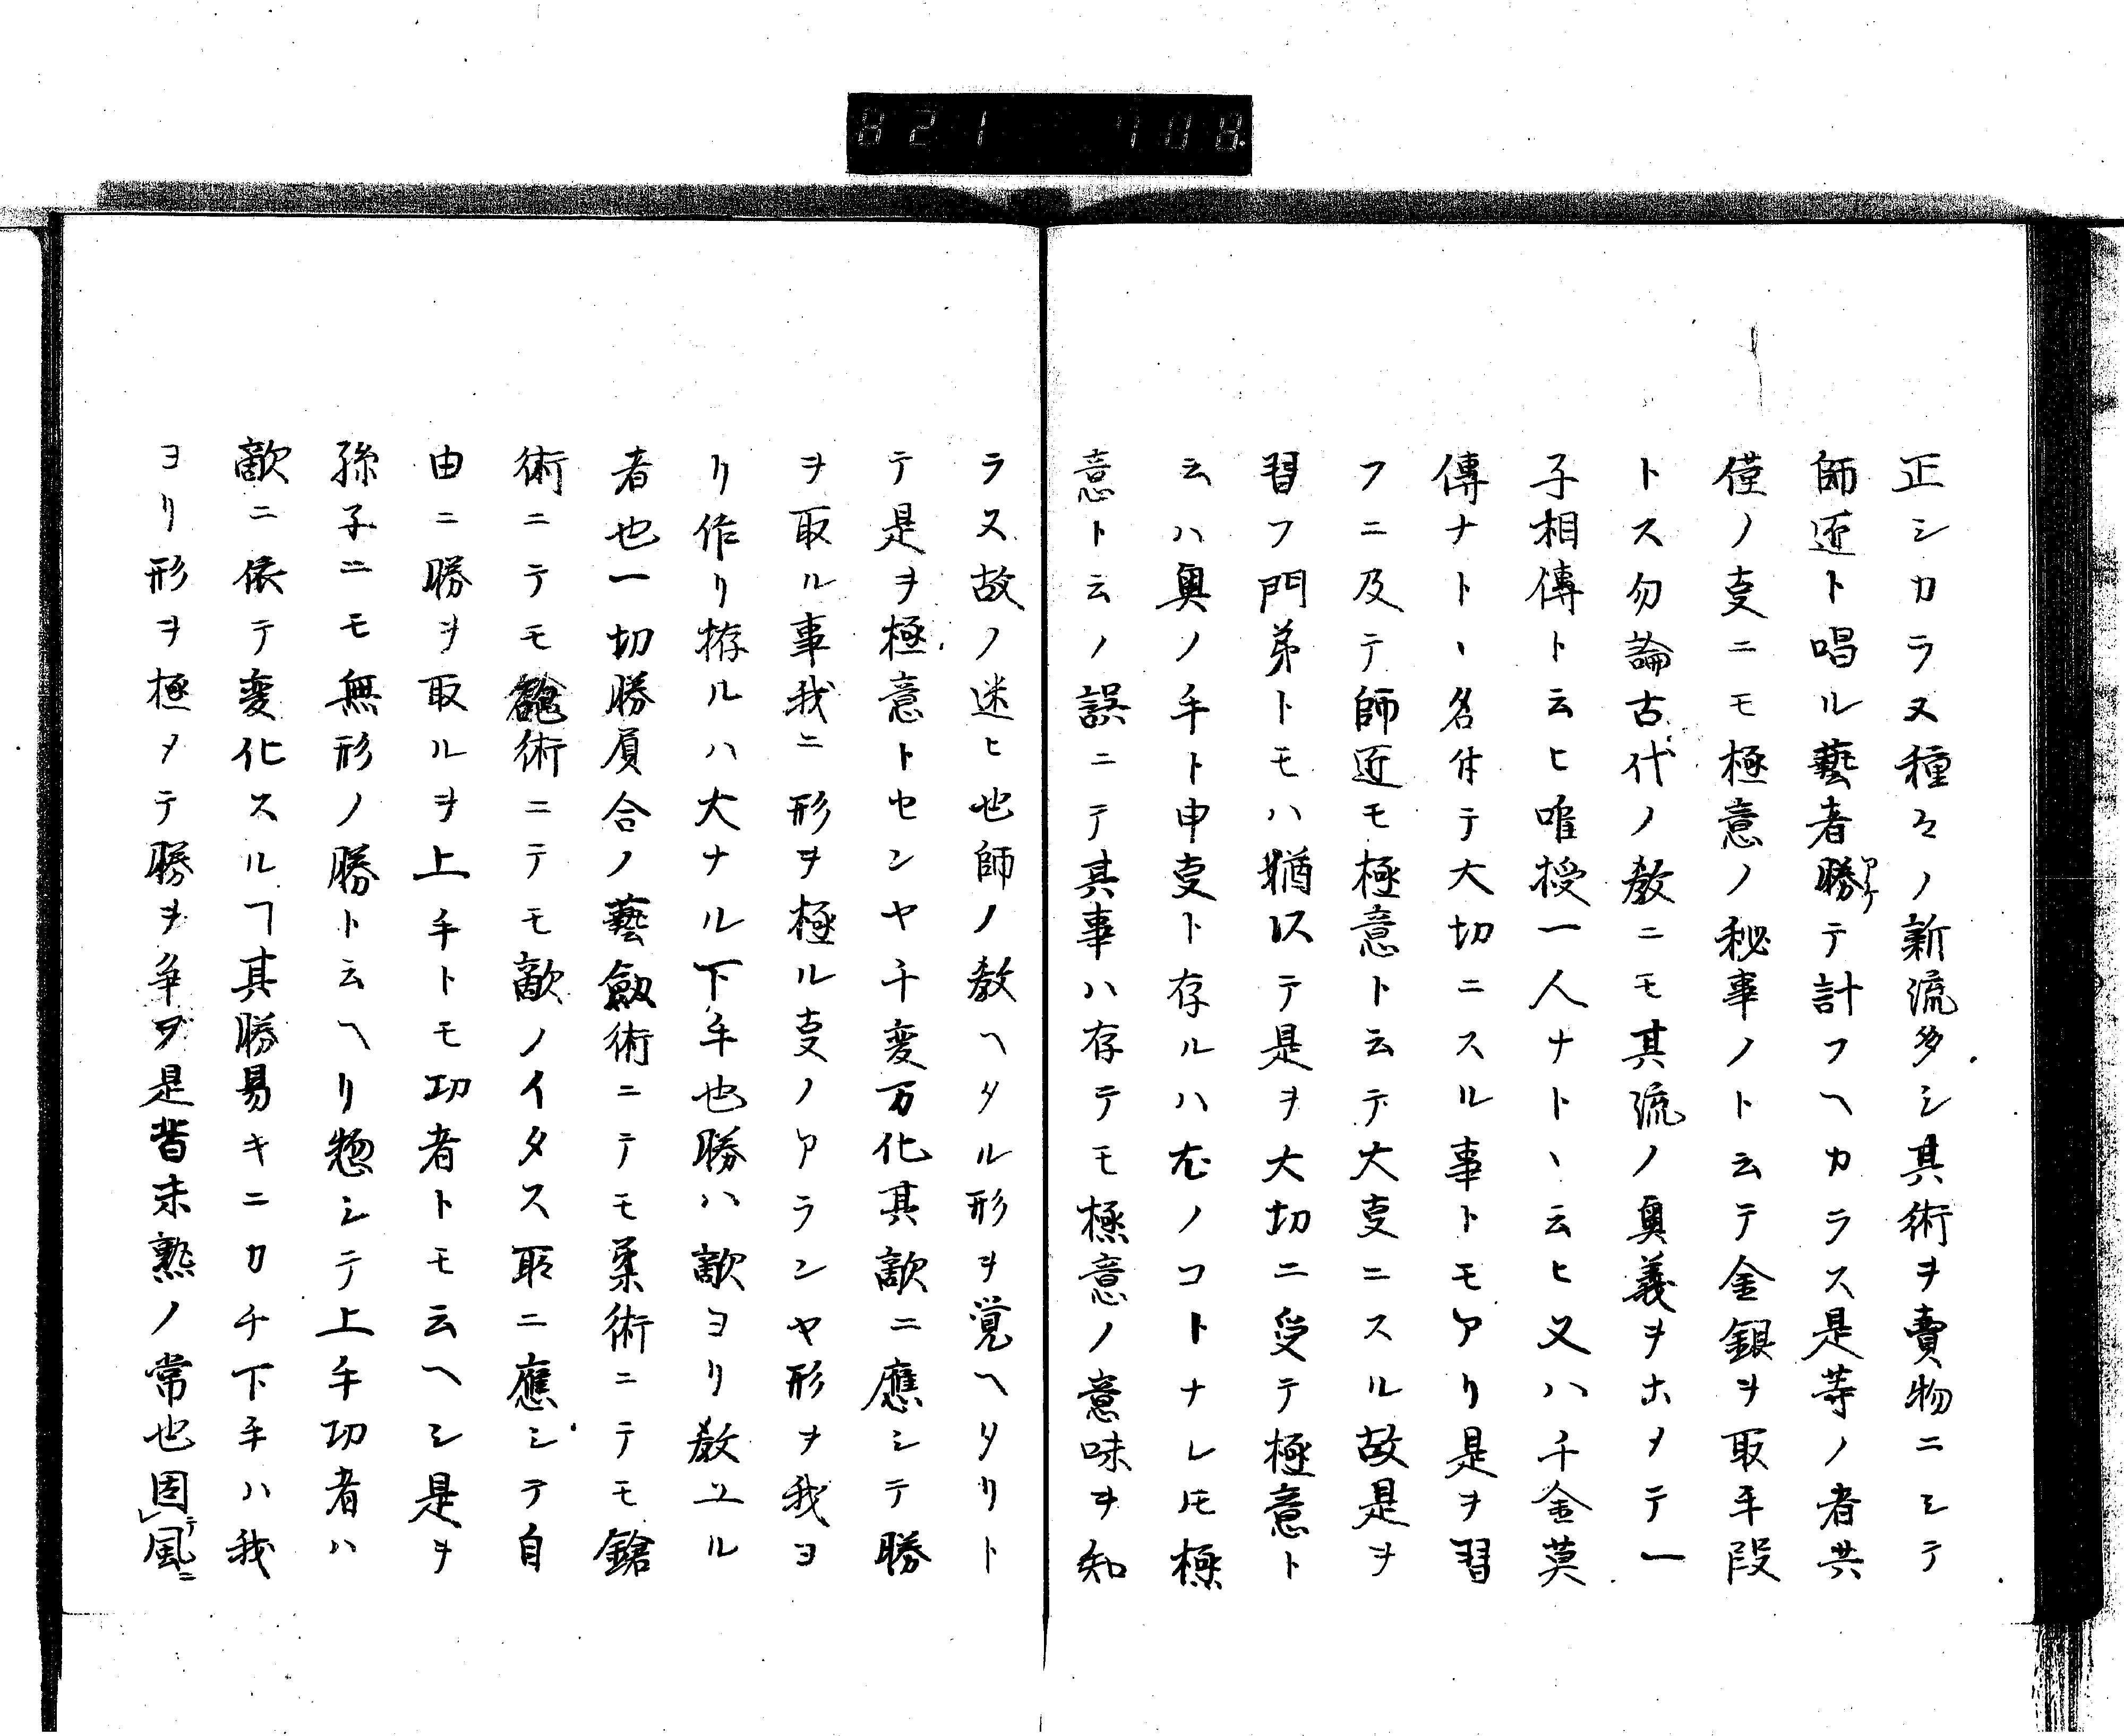 821 708
正シカラス種々ノ新流多シ其術ヲ賣物ニシテ
師匠ト唱ル藝者勝テ計フヘカラス是等ノ者共
僅ノ叓ニモ極意ノ秘事ノト云テ金銀ヲ取手段
トス勿論古代ノ教ニモ其流ノ奥義ヲホメテ一
子相傳ト云ヒ唯授一人ナトヽ云ヒ又ハ千金莫
傳ナトヽ名付テ大切ニスル事トモアリ是ヲ習
フニ及テ師匠モ極意ト云テ大叓ニスル故是ヲ
習フ門弟トモハ猶以テ是ヲ大切ニ受テ極意ト
云ハ奥ノ手ト申叓ト存ルハ尤ノコトナレ𪜈極
意ト云ノ誤ニテ其事ハ存テモ極意ノ意味ヲ知
ラス故ノ迷ヒ也師ノ教ヘタル形ヲ覚ヘタリト
テ是ヲ極意トセンヤ千変万化其敵ニ應シテ勝
ヲ取ル事我ニ形ヲ極ル叓ノアランヤ形ヲ我ヨ
リ作リ拵ルハ大ナル下手也勝ハ敵ヨリ教ユル
者也一切勝負合ノ藝劔術ニテモ柔術ニテモ鎗
術ニテモ術ニテモ敵ノイタス取ニ應シテ自
由ニ勝ヲ取ルヲ上手トモ功者トモ云ヘシ是ヲ
孫子ニモ無形ノ勝ト云ヘリ惣シテ上手功者ハ
敵ニ依テ変化スルヿ其勝易キニカチ下手ハ我
ヨリ形ヲ極メテ勝ヲ争ダ是皆未熟ノ常也因テ風ニ